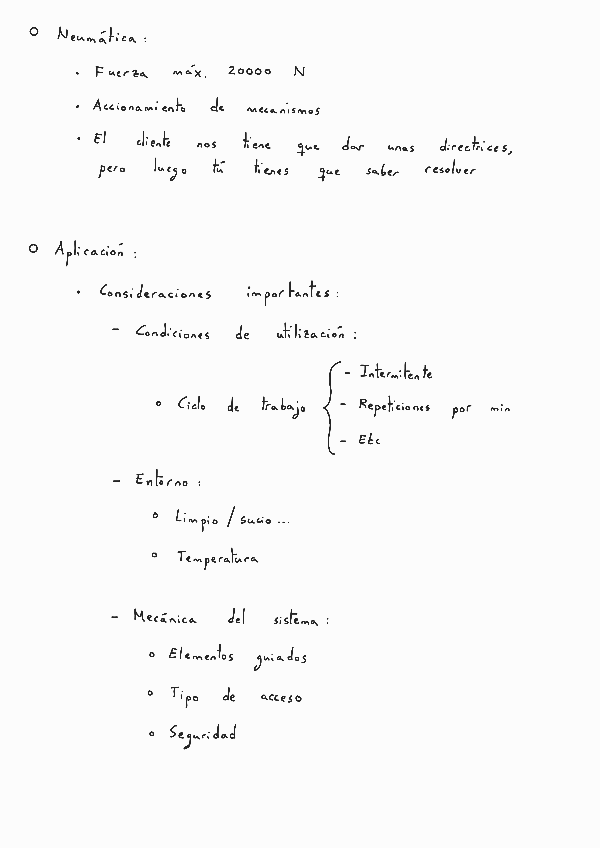 o Neumática :
· Fuerza máx. 20000 N
· Accionamiento de mecanismos
· El cliente nos tiene que dar unas directrices,
pero luego tú tienes que saber resolver
o Aplicación :
· Consideraciones importantes :
- Condiciones de utilización :
- Intermitente
o Ciclo de trabajo - Repeticiones por min
- Etc
- Entorno :
o Limpio / sucio ...
o Temperatura
- Mecánica del sistema :
o Elementos guiados
o Tipo de acceso
o Seguridad